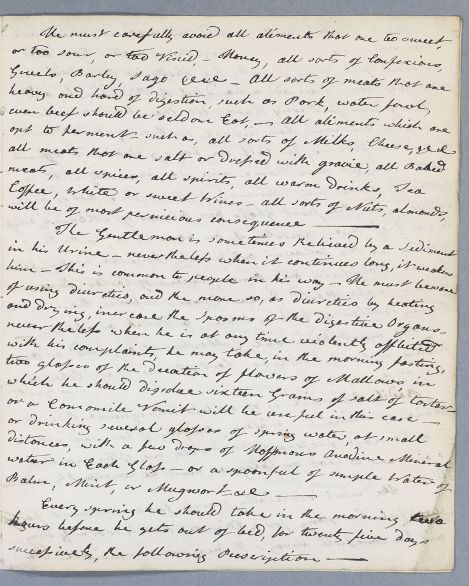 He must carefully avoid all aliments that are too sweet,
or too sour, or too Viscid – Honey, all sorts of Confexions,
Gruels, Barley Sago &c&c – All sorts of meats that are
heavy and hard of digestion, such as Pork, water fowl,
even beef should be seldom Eat, – all aliments which are
apt to ferment such as, all sorts of Milks, Cheese, &c&c
all meats that are salt or dressed with gravie, all Baked
meats, all spices, all spirits, all warm Drinks, Tea
Coffee, White or sweet Wines – all sorts of Nuts, almonds,
will be of most pernicious consequence
The Gentleman is sometimes Relieved by a Sediment
in his Urine – nevertheless when it continues long, it weakens
him – This is common to people in his way – He must beware
of using diuretics, and the more so, as diuretics by heating
and Drying, increase the Spasms of the digestive Organs.
nevertheless when he is at any time violently afflicted
with his complaints, he may take, in the morning fasting,
two glasses of the Decoction of flowers of Mallows in
which he should dissolve sixteen Grains of salt of tartar –
or a Camomile Vomit will be useful in this case –
or drinking several glasses of spring water, at small
distances, with a few drops of Hoffmans Anodine Mineral
water in Each Glass – or a spoonful of simple Water of
Balm, Mint or Mugwort &c
Every spring he should take in the morning, two
hours before he gets out of bed, for twenty five days
successively, the following Prescription